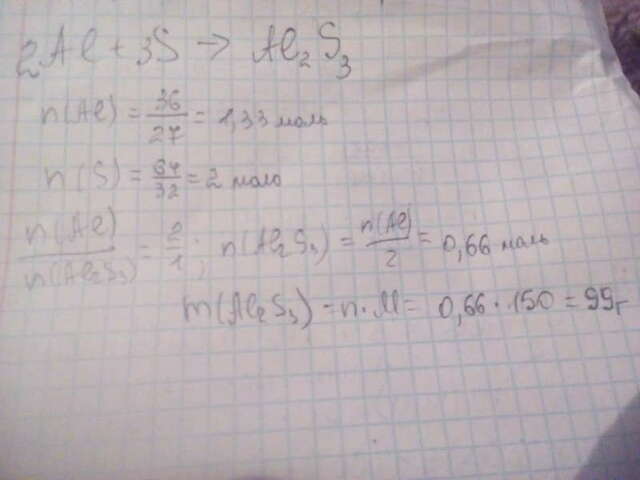 2Al + 3S → Al₂S₃
n(Al) = 36/27 = 1,33 моль
n(S) = 64/32 = 2 моль
n(Al)/n(Al₂S₃) = 2/1; n(Al₂S₃) = n(Al)/2 = 0,66 моль
m(Al₂S₃) = n · M = 0,66 · 150 = 99г